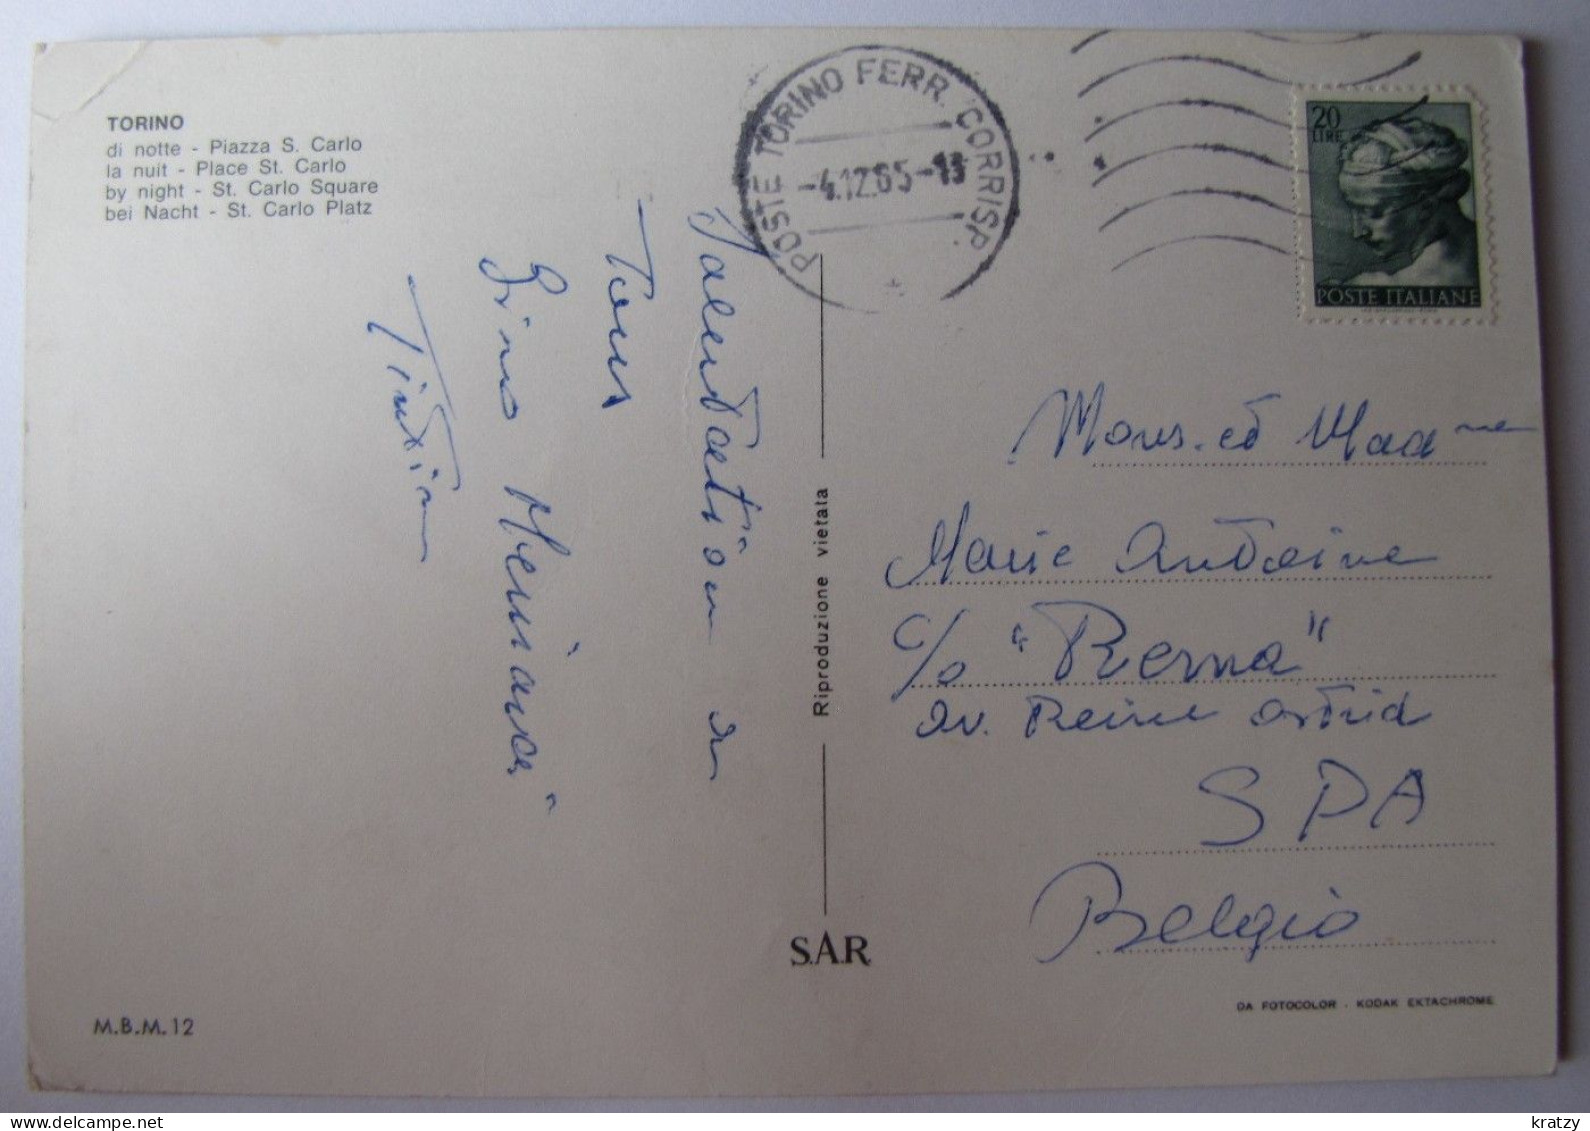 TORINO
di notte - Piazza S. Carlo
la nuit - Place St. Carlo
by night - St. Carlo Square
bei Nacht - St. Carlo Platz
POSTE TORINO FERR. CORRISP.
-4.12.65-13
20
LIRE
POSTE ITALIANE
Tous
Tintin
Riproduzione vietata
S.A.R.
Mons. et Madme
Marie Antoine
c/o "Rerna"
Av. Reine Astrid
SPA
Belgio
M.B.M. 12
DA FOTOCOLOR - KODAK EKTACHROME
kratzy